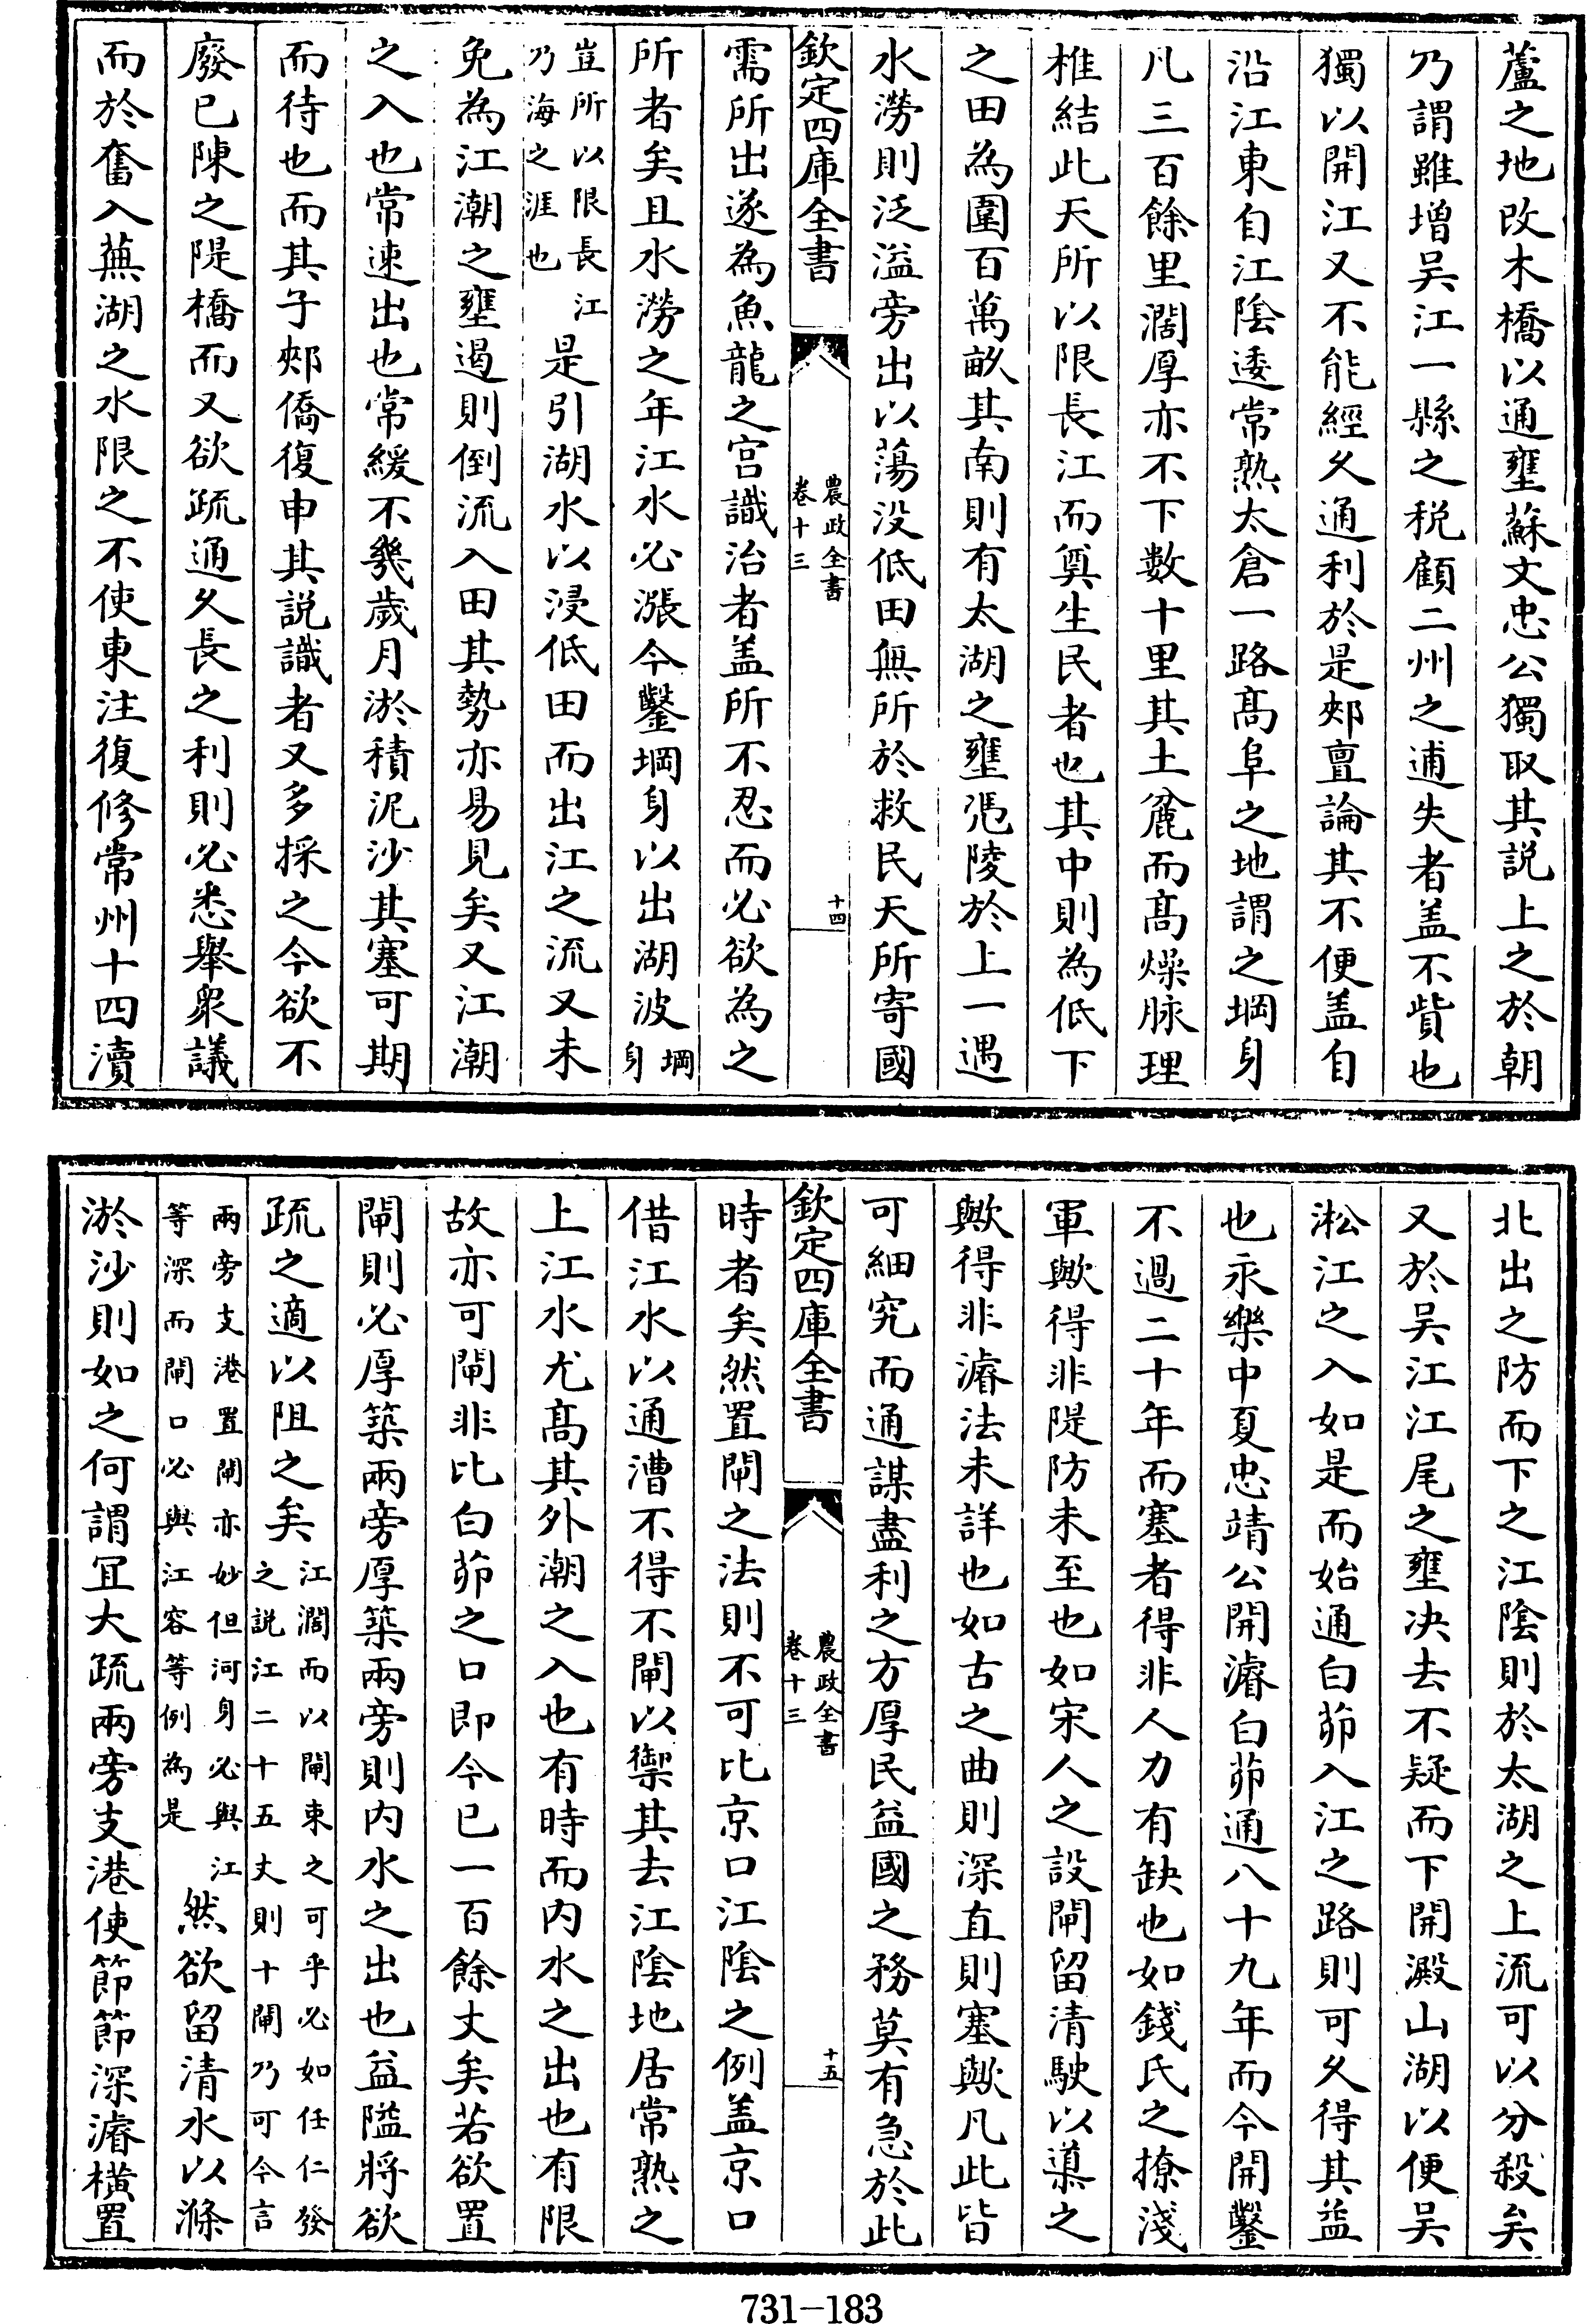 蘆之地改木橋以通壅蘇文忠公獨取其説上之於朝
乃謂雖增吴江一縣之税顧二州之逋失者盖不貲也
獨以開江又不能經久通利於是郟亶論其不便盖自
沿江東自江陰逶常熟太倉一路髙阜之地謂之堈身
凡三百餘里濶厚亦不下數十里其土麄而髙燥脉理
椎結此天所以限長江而奠生民者也其中則為低下
之田為圍百萬畝其南則有太湖之壅慿陵於上一遇
水澇則泛溢旁出以蕩没低田無所於救民天所寄國
欽定四庫全書
農政全書
卷十三
十四
需所出遂為魚龍之宫識治者盖所不忍而必欲為之
所者矣且水澇之年江水必漲今鑿堈身以出湖波堈
身
豈所以限長江
乃海之涯也
是引湖水以浸低田而出江之流又未
免為江潮之壅遏則倒流入田其勢亦易見矣又江潮
之入也常速出也常緩不幾歲月淤積泥沙其塞可期
而待也而其子郟僑復申其説識者又多採之今欲不
廢已陳之隄橋而又欲疏通久長之利則必悉舉衆議
而於奮入蕪湖之水限之不使東注復修常州十四瀆
北出之防而下之江陰則於太湖之上流可以分殺矣
又於吴江江尾之壅决去不疑而下開澱山湖以便吴
淞江之入如是而始通白茆入江之路則可久得其益
也永樂中夏忠靖公開濬白茆通八十九年而今開鑿
不過二十年而塞者得非人力有缺也如錢氏之撩淺
軍歟得非隄防未至也如宋人之設閘留清駛以導之
歟得非濬法未詳也如古之曲則深直則塞歟凡此皆
可細究而通謀盡利之方厚民益國之務莫有急於此
欽定四庫全書
農政全書
卷十三
十五
時者矣然置閘之法則不可比京口江陰之例盖京口
借江水以通漕不得不閘以禦其去江陰地居常熟之
上江水尤髙其外潮之入也有時而内水之出也有限
故亦可閘非比白茆之口即今已一百餘丈矣若欲置
閘則必厚築兩旁厚築兩旁則内水之出也益隘將欲
疏之適以阻之矣
江濶而以閘束之可乎必如任仁發
之説江二十五丈則十閘乃可今言
兩旁支港置閘亦妙但河身必與江
等深而閘口必與江容等例為是
然欲留清水以滌
淤沙則如之何謂冝大疏兩旁支港使節節深濬橫置
731-183